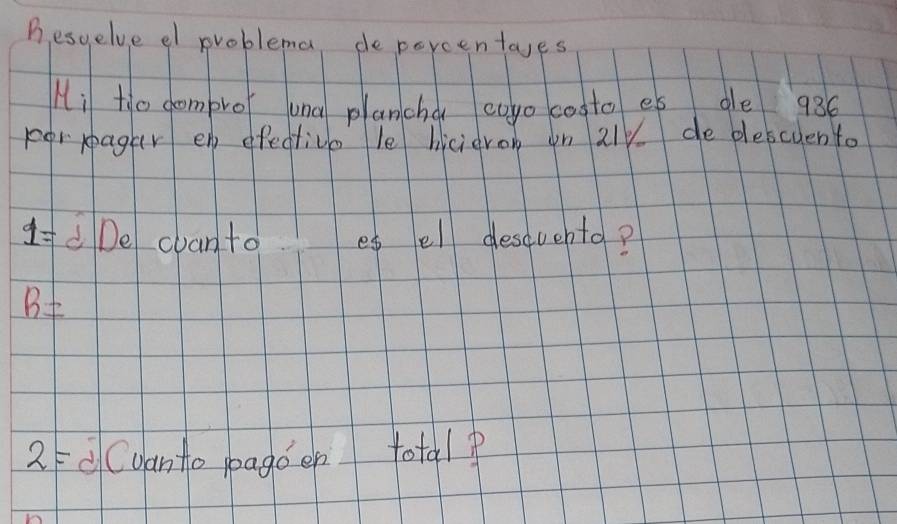 Resuelve el problema de porcentajes
Mi tio compro una plancha cuyo costo es de 936
por pagar en efectivo le hicieron un 21% de descuento
1= ¿De cuanto es el descuento?
R=
2= ¿Cuanto pagó en total?